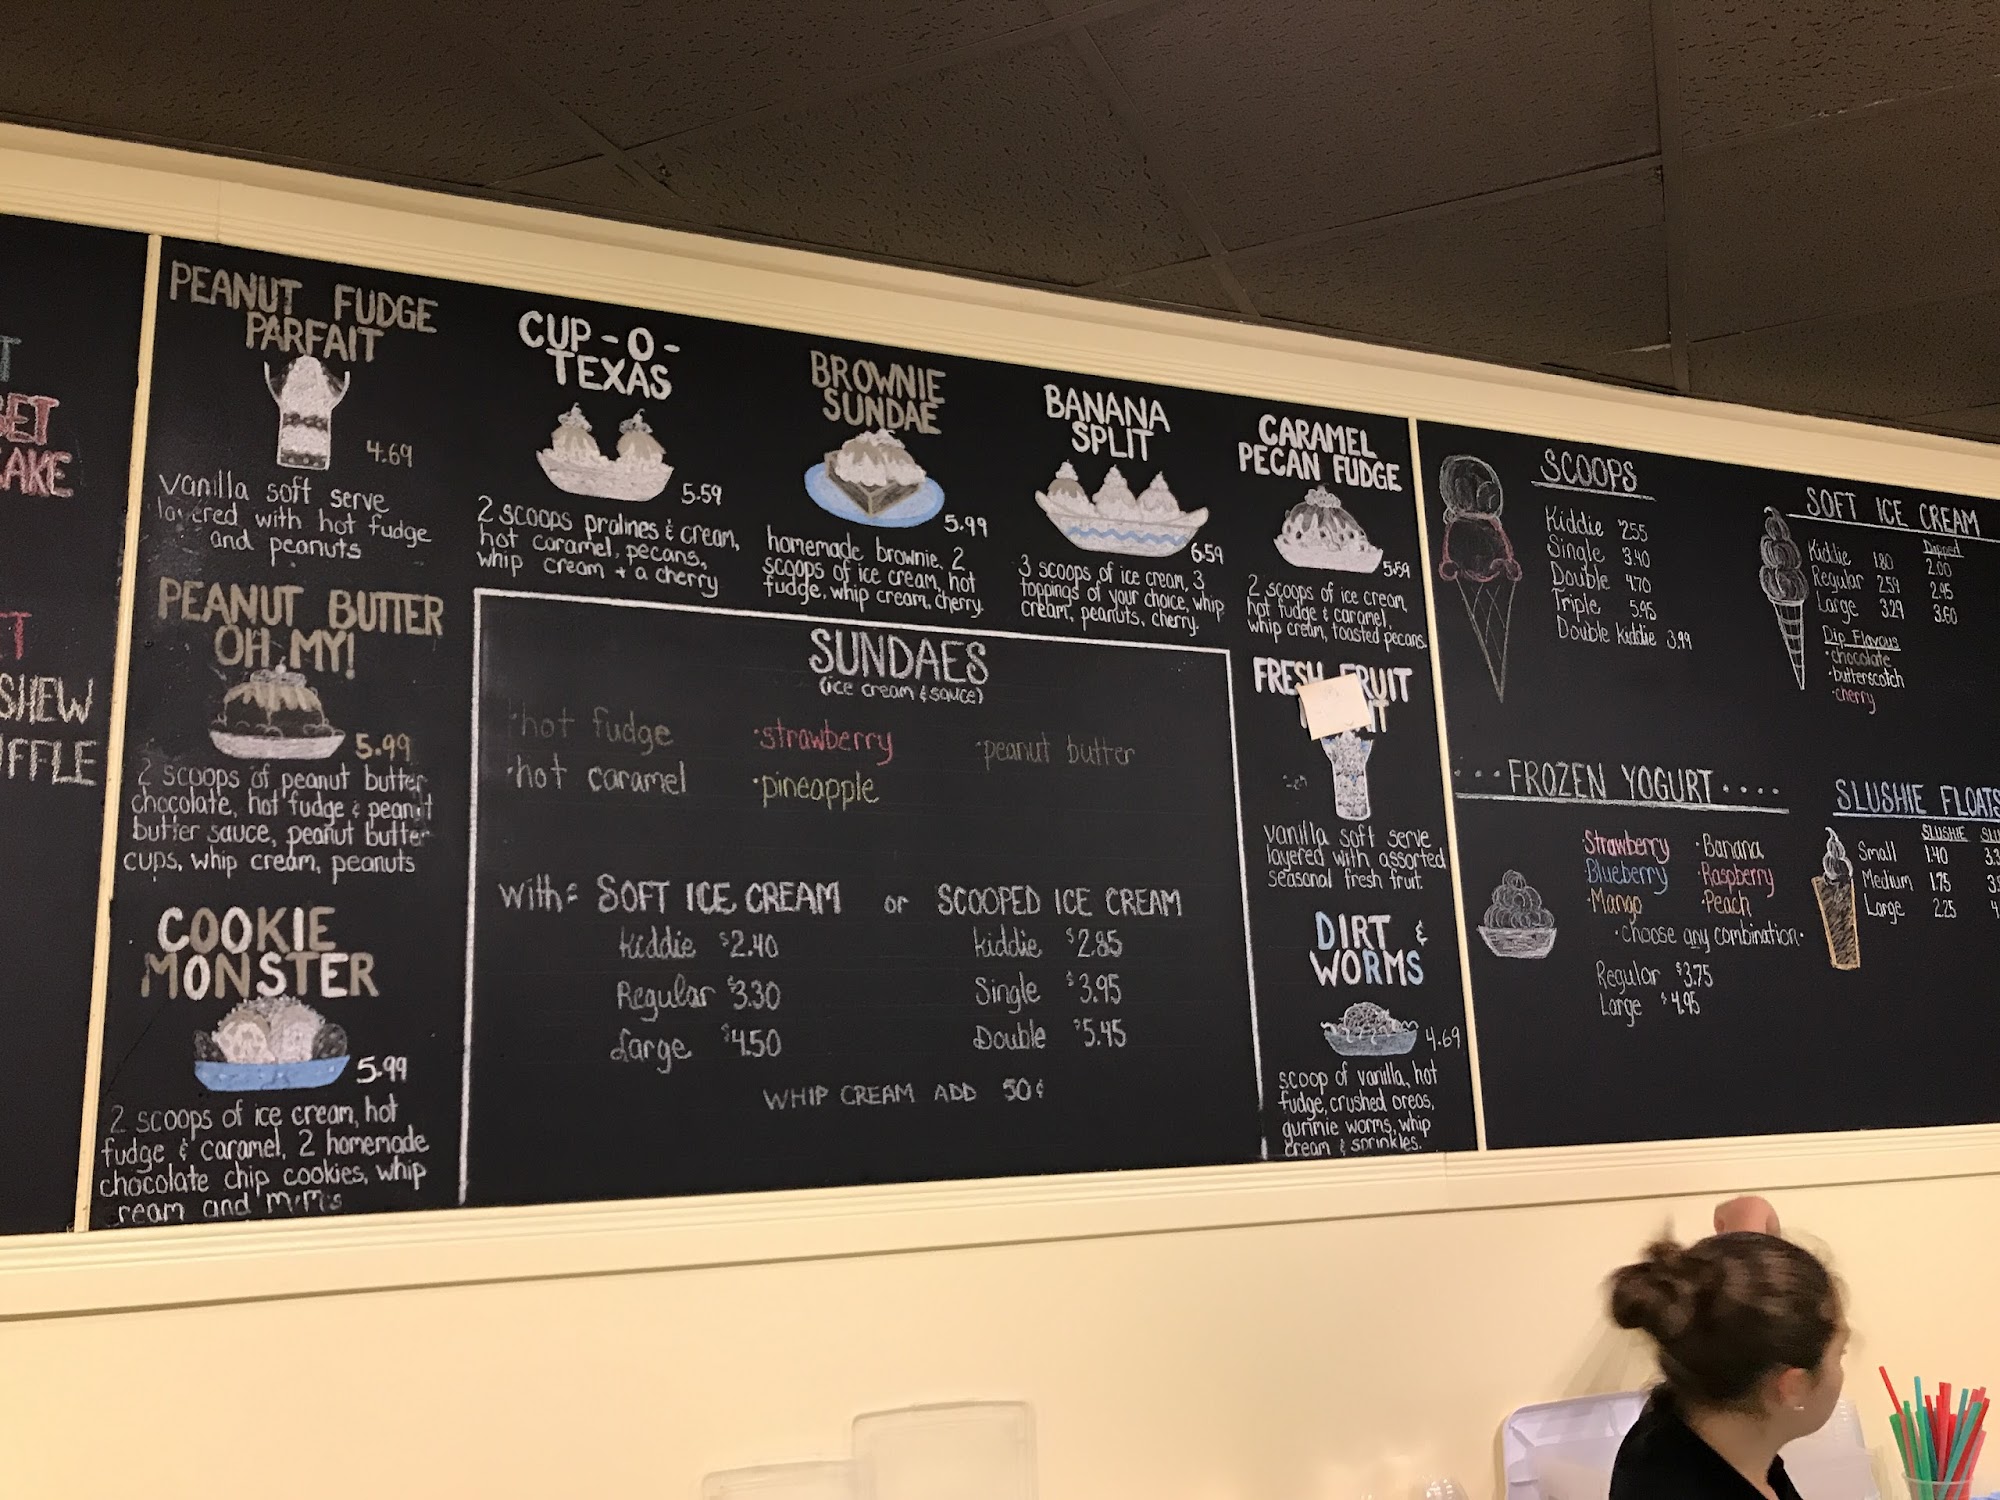 BET
CAKE
SHEW
FFLE
PEANUT FUDGE
PARFAIT
4.69
vanilla soft serve
layered with hot fudge
and peanuts
PEANUT BUTTER
OH MY!
5.99
2 scoops of peanut butter
chocolate, hot fudge & peanut
butter sauce, peanut butter
cups, whip cream, peanuts
COOKIE
MONSTER
5.99
2 scoops of ice cream, hot
fudge & caramel, 2 homemade
chocolate chip cookies, whip
ream and M&M's
CUP-O-
TEXAS
5.59
2 scoops pralines & cream,
hot caramel, pecans,
whip cream + a cherry
BROWNIE
SUNDAE
5.99
homemade brownie, 2
scoops of ice cream, hot
fudge, whip cream, cherry.
BANANA
SPLIT
6.59
3 scoops of ice cream, 3
toppings of your choice, whip
cream, peanuts, cherry.
CARAMEL
PECAN FUDGE
5.59
2 scoops of ice cream,
hot fudge & caramel,
whip cream, toasted pecans.
SUNDAES
(ice cream & sauce)
·hot fudge ·strawberry ·peanut butter
·hot caramel ·pineapple
with: SOFT ICE CREAM or SCOOPED ICE CREAM
kiddie $2.40 kiddie $2.85
Regular $3.30 Single $3.95
Large $4.50 Double $5.45
WHIP CREAM ADD 50¢
FRESH FRUIT
vanilla soft serve
layered with assorted
seasonal fresh fruit.
DIRT &
WORMS
4.69
scoop of vanilla, hot
fudge, crushed oreos,
gummie worms, whip
cream & sprinkles.
SCOOPS
Kiddie 2.55
Single 3.40
Double 4.70
Triple 5.45
Double kiddie 3.99
SOFT ICE CREAM
Dipped
Kiddie 1.80 2.00
Regular 2.59 2.95
Large 3.29 3.60
Dip Flavours
·chocolate
·butterscotch
·cherry
···FROZEN YOGURT····
Strawberry ·Banana
·Blueberry ·Raspberry
·Mango ·Peach
·choose any combination·
Regular $3.75
Large $4.95
SLUSHIE FLOATS
SLUSHIE
Small 1.40
Medium 1.75
Large 2.25